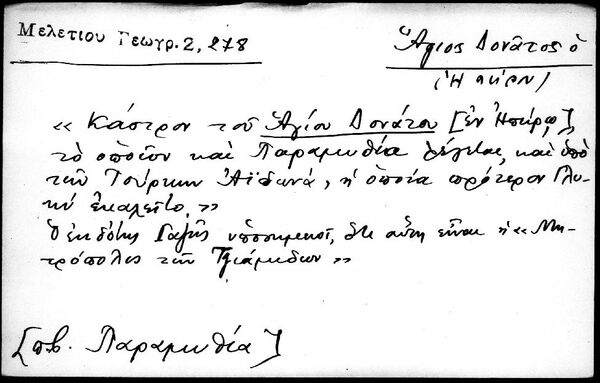 Μελετίου Γεωγρ. 2, 278
Ἅγιος Δονᾶτος ὁ
(Ἠπείρου)
« Κάστρον τοῦ Ἁγίου Δονάτου [ἐν Ἠπείρῳ],
τὸ ὁποῖον καὶ Παραμυθία λέγεται, καὶ ὑπὸ
τῶν Τούρκων Ἀϊδωνά, ἡ ὁποία πρότερον Γλυ-
κύ ἐκαλεῖτο. »
Ὁ ἐκδότης Γαζῆς ὑποσημειοῖ, ὅτι αὕτη εἶναι ἡ « Μη-
τρόπολις τῶν Τζιάμιδων »
[πβ. Παραμυθία]